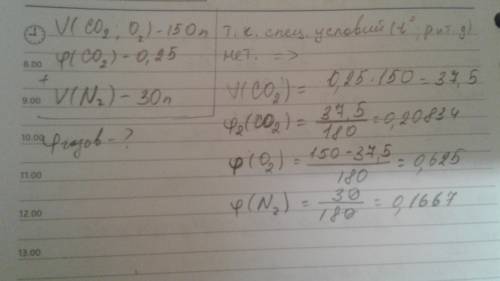 V(CO₂; O₂) - 150л
φ(CO₂) - 0,25
+
V(N₂) - 30л
φгазов - ?
8.00
9.00
10.00
11.00
12.00
13.00
т.к. спец. условий (t°, p и т.д)
нет. =>
V(CO₂) = 0,25·150 = 37,5
φ₂(CO₂) = 37,5/180 = 0,20834
φ(O₂) = 150-37,5/180 = 0,625
φ(N₂) = 30/180 = 0,1667